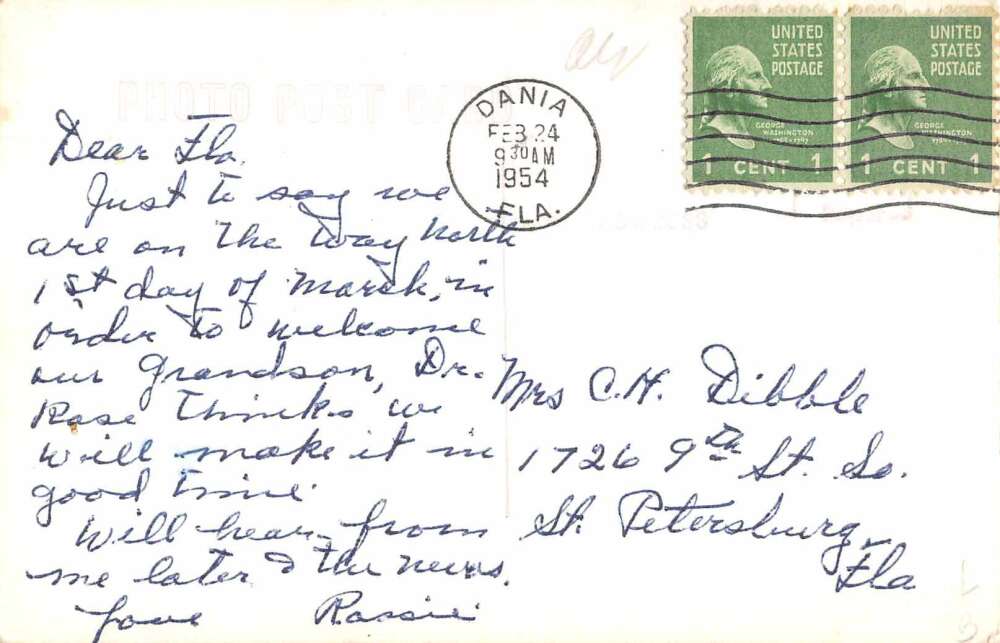 PHOTO POST CARD
DANIA
FEB 24
9 30 AM
1954
FLA.
UNITED
STATES
POSTAGE
GEORGE
WASHINGTON
1 CENT 1
UNITED
STATES
POSTAGE
GEORGE
WASHINGTON
1 CENT 1
Dear Flo.
Just to say we
are on the way North
1st day of March, in
order to welcome
our Grandson, Dr.
Rose thinks we
will make it in
good time.
Will hear from
me later & the news.
Love
Mrs C. H. Dibble
1726 9th St. So.
St. Petersburg,
Fla